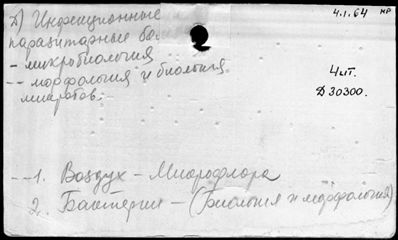 д) Инфекционные
паразитарные бол.
- микробиология
-- морфология и биология
микробов.
4.1.64 НР
4 ит.
Д 30300.
--1. Воздух - Микрофлора
2. Бактерии - (Биология и морфология)